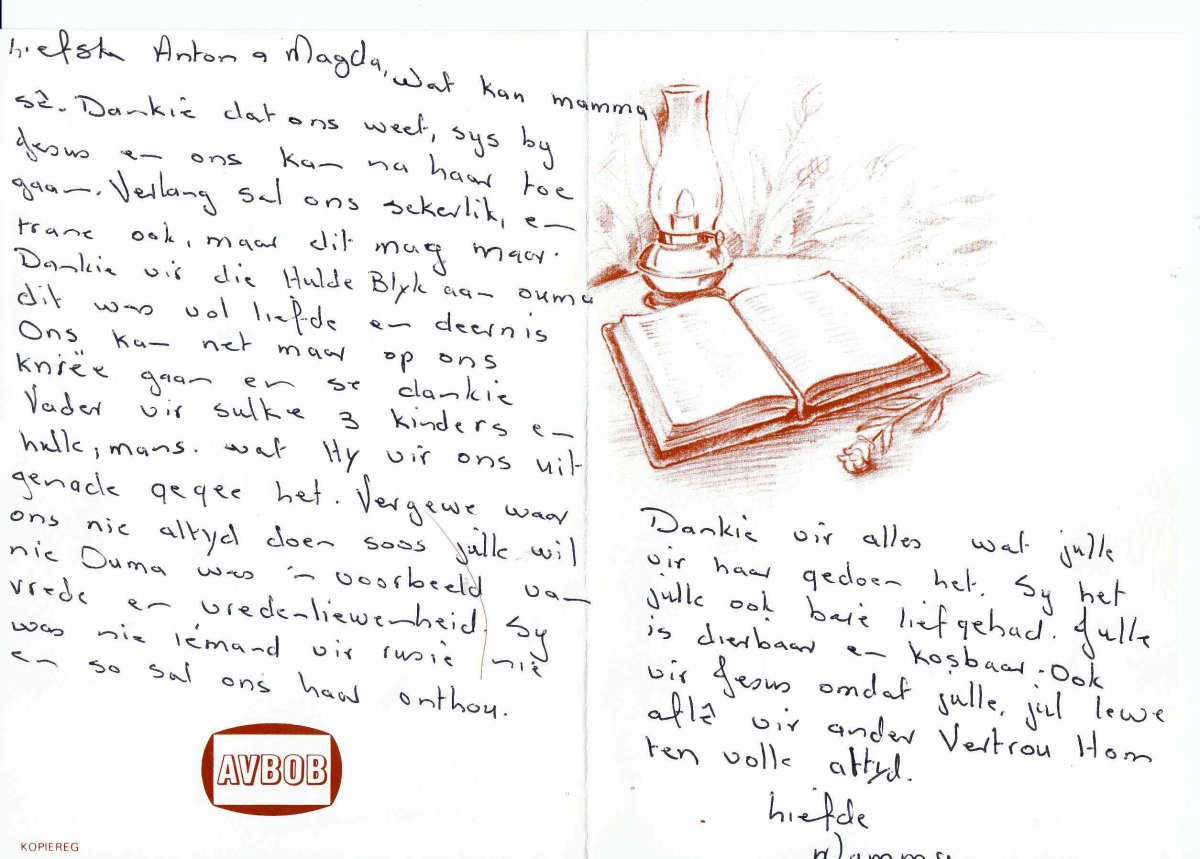 Liefste Anton & Magda, wat kan mamma
sê. Dankie dat ons weet, sys by
Jesus en ons kan na haar toe
gaan. Verlang sal ons sekerlik, en
trane ook, maar dit mag maar.
Dankie vir die Hulde Blyk aan ouma
dit was vol liefde en deernis
Ons kan net maar op ons
knieë gaan en se dankie
Vader vir sulke 3 kinders en
hulle, mans. wat Hy vir ons uit
genade gegee het. Vergewe waar
ons nie altyd doen soos julle wil
nie Ouma was 'n voorbeeld van
vrede en vredenliewenheid. Sy
was nie iémand vir rusie nie
en so sal ons haar onthou.
AVBOB
KOPIEREG
Dankie vir alles wat julle
vir haar gedoen het. Sy het
julle ook baie liefgehad. Julle
is dierbaar en kosbaar. Ook
vir Jesus omdat julle, jul lewe
aflê vir ander Vertrou Hom
ten volle altyd.
Liefde
Mamma